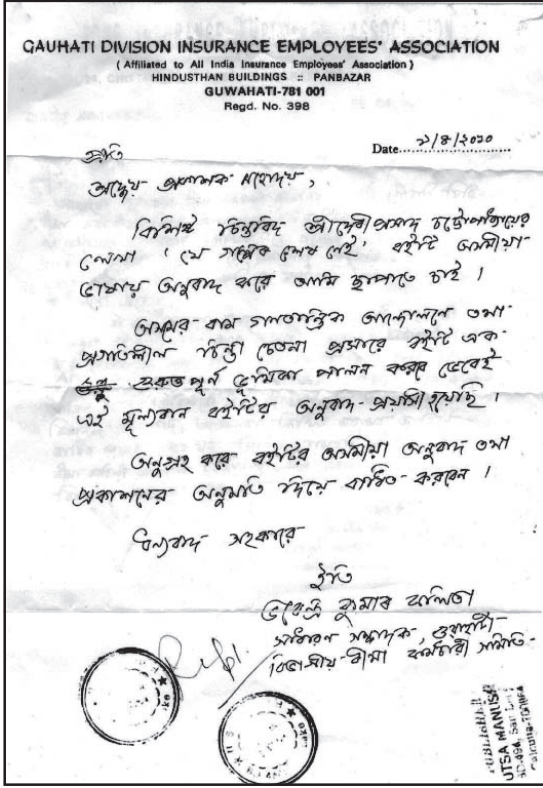 GAUHATI DIVISION INSURANCE EMPLOYEES' ASSOCIATION
( Affiliated to All India Insurance Employees' Association )
HINDUSTHAN BUILDINGS :: PANBAZAR
GUWAHATI-781 001
Regd. No. 398
Date
প্রতি
শ্রদ্ধেয় প্রকাশক মহোদয়,
বিশিষ্ট চিন্তাবিদ শ্রীদেবীপ্রসাদ চট্টোপাধ্যায়ের
লেখা ‘যে গল্পের শেষ নেই’ বইটি অসমীয়া
ভাষায় অনুবাদ করে আমি ছাপাতে চাই।
অসমের বাম গণতান্ত্রিক আন্দোলনে তথা
প্রগতিশীল চিন্তা চেতনা প্রসারে বইটি এক
গুরুত্বপূর্ণ ভূমিকা পালন করবে ভেবেই
এই মূল্যবান বইটির অনুবাদ প্রয়াসী হয়েছি।
অনুগ্রহ করে বইটির অসমীয়া অনুবাদ তথা
প্রকাশনের অনুমতি দিয়ে বাধিত করবেন।
ধন্যবাদ সহকারে
ইতি
কুমাৰ
সাধারণ সম্পাদক, গুৱাহাটী
বিভাগীয় বীমা কর্মচারী সমিতি
PUBLISHER
UTSA MANUSH